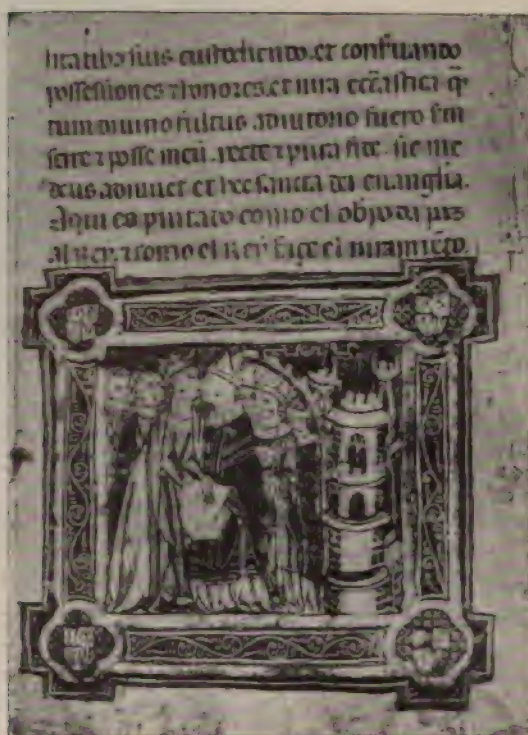 litatibꝫ suis custodiendo. et conẜuando
possessiones ⁊ honores. et iura eccl̃astica. q̃
tum diuino fultus adiutorio fuero sen
ser̃e ⁊ posse meũ. recte ⁊ pura fide. sic me
deus adiuuet et hec sancta dei euanglia.
Aqui es pintado como el obp̃o da pas
al Rey. ⁊ como el Rey faze el iuramẽto.